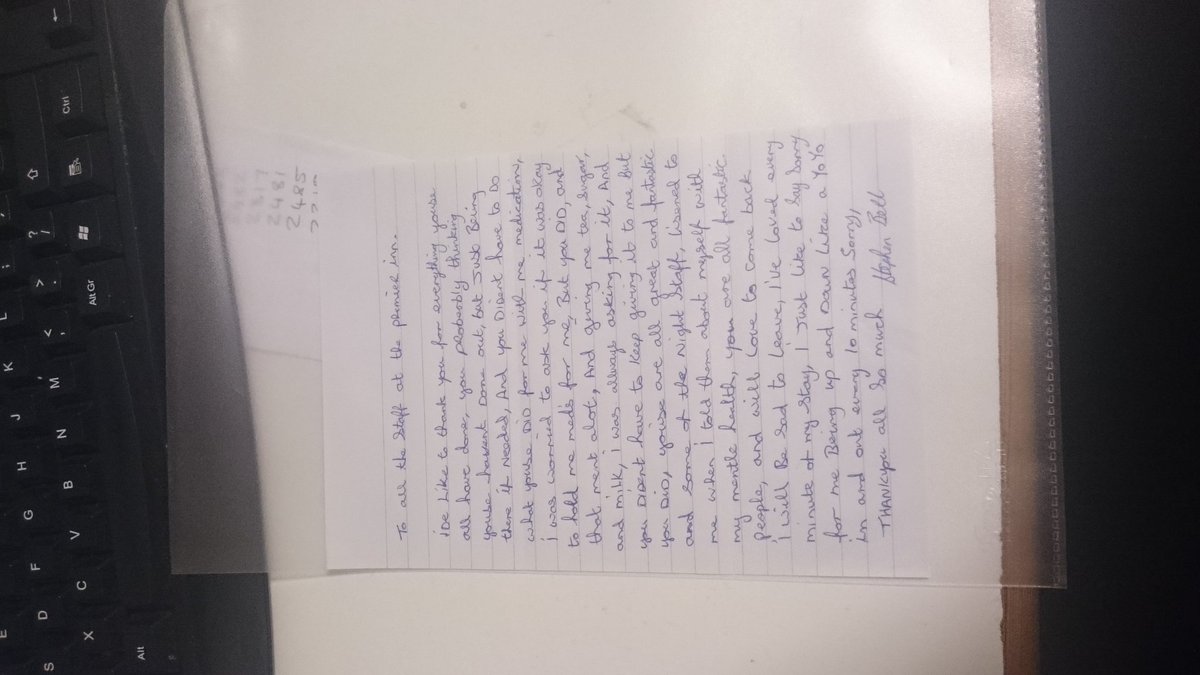 To all the Staff at the primier in.
iDe Like to thank you for everything youse
all have done, you proberbly thinking
youse havent Done out, but Just Being
there if Needed, And you Dident have to Do
what youse DiD for me with me medication,
i was worried to ask you if it was okay
to hold me med's for me, But you DiD, and
that ment alot, And giving me tea, sugar,
and milk, i was allways asking for it, And
you Dident have to Keep giving it to me But
you DiD, youse are all great and fantastic
and some of the Night Staff, Lisened to
me when i told them about myself with
my mentle health, you are all fantastic
People, and will Love to come back
i will Be Sad to Leave, i've Loved every
minute of my Stay, I Just Like to Say Sorry
for me Being up and Down Like a YoYo
in and out every 10 minutes Sorry,
THANKyou all So much Stephen
2481
2485
Ctrl
Alt Gr
Alt
?
/
>
.
<
,
:
;
L
K
J
H
G
F
D
S
M
N
B
V
C
X
E